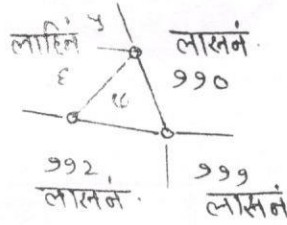 लाहिनं ५
६
लासनं.
११०
१८
११२
लासनं.
१११
लासनं